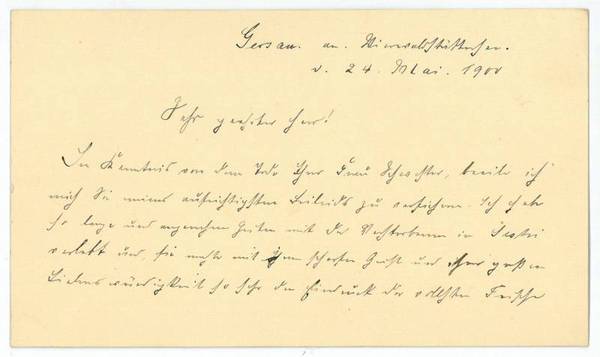 Gersau. am. Vierwaldstättersee.
d. 24. Mai. 1900
Sehr geehrter Herr!
In Kenntnis von dem Tode Ihrer Frau Schwester, beeile ich
mich Sie meines aufrichtigsten Beileids zu versichern. Ich habe
so lange und angenehme Zeiten mit der Verstorbenen in
verlebt und sie machte mit ihrem scharfen Geist und ihrer großen
Liebenswürdigkeit so sehr den Eindruck der vollsten Frische